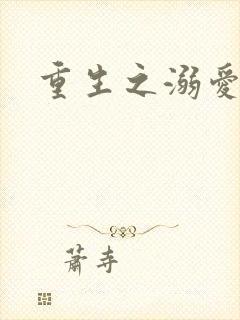 重生之溺愛
蕭寺